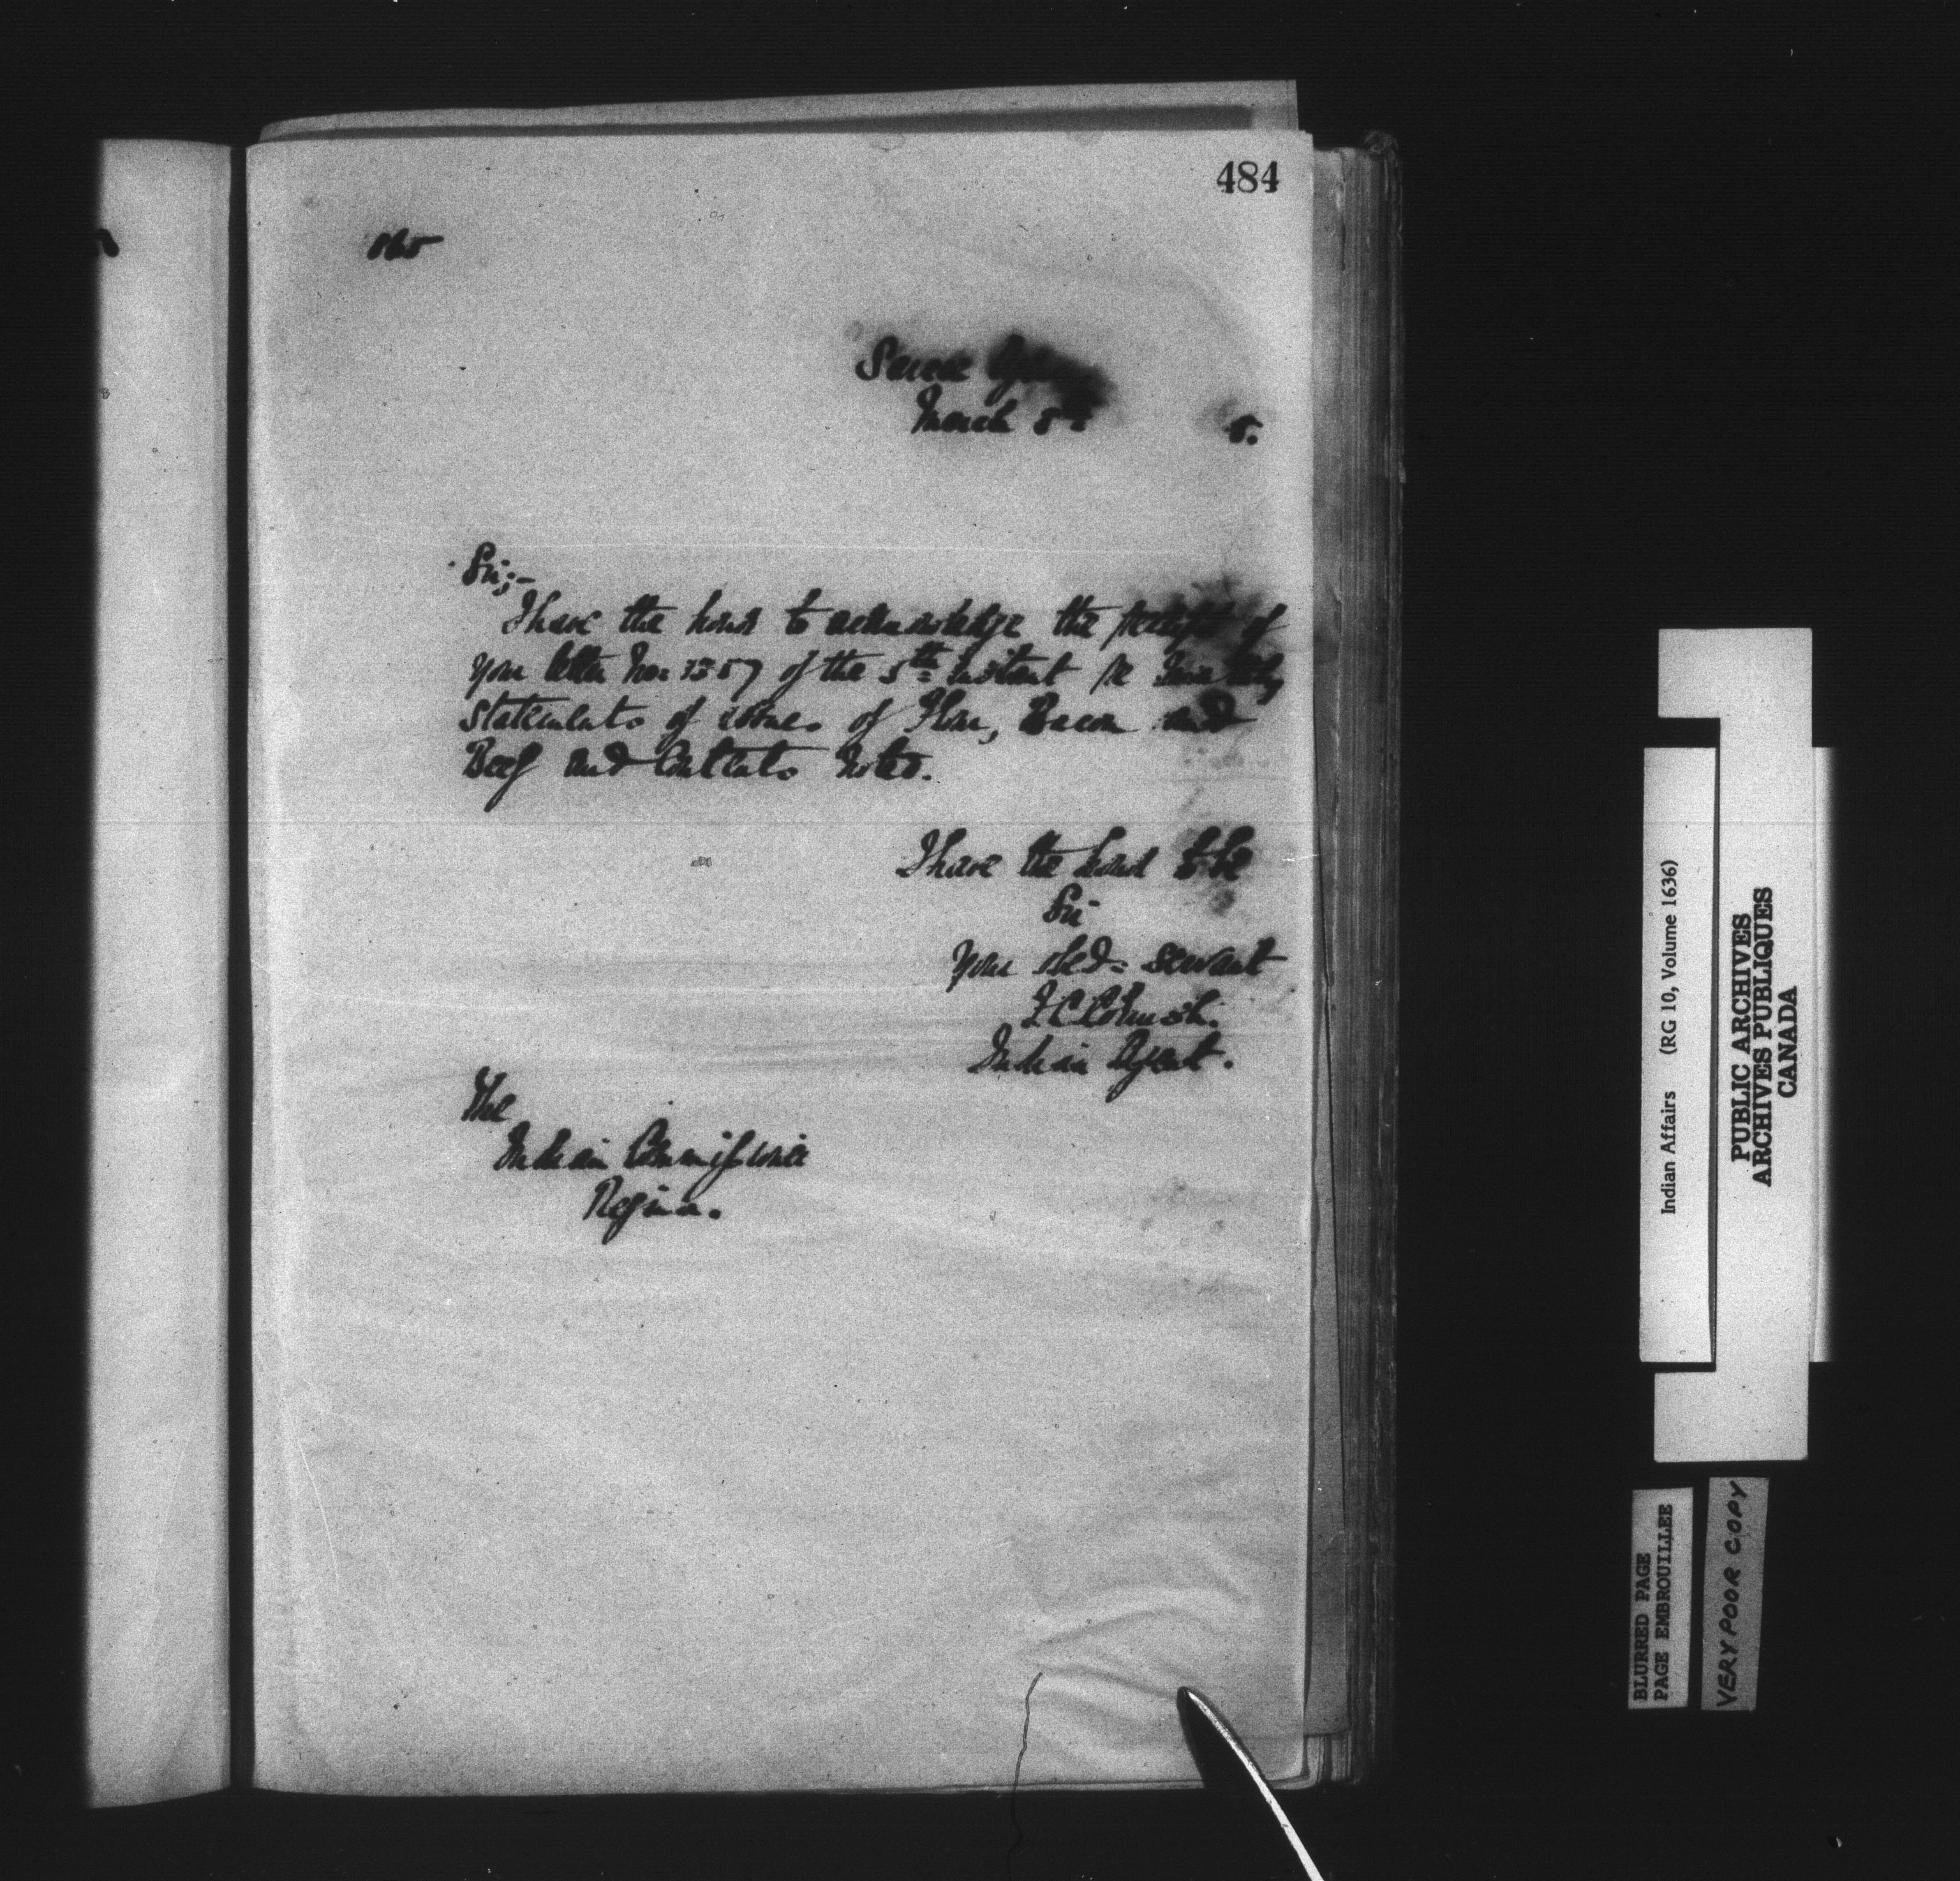 484
865
Sarcee Agency
March 8th 5.
Sir;-
I have the honor to acknowledge the receipt of
your letter No. of the 5th instant re
statements of issues of Flour, Bacon and
Beef and Contents noted.
I have the honor to be
Sir
Your obed. servant
Indian Agent.
The
Indian Commissioner
Regina.
Indian Affairs (RG 10, Volume 1636)
PUBLIC ARCHIVES
ARCHIVES PUBLIQUES
CANADA
BLURRED PAGE
PAGE EMBROUILLEE
VERY POOR COPY